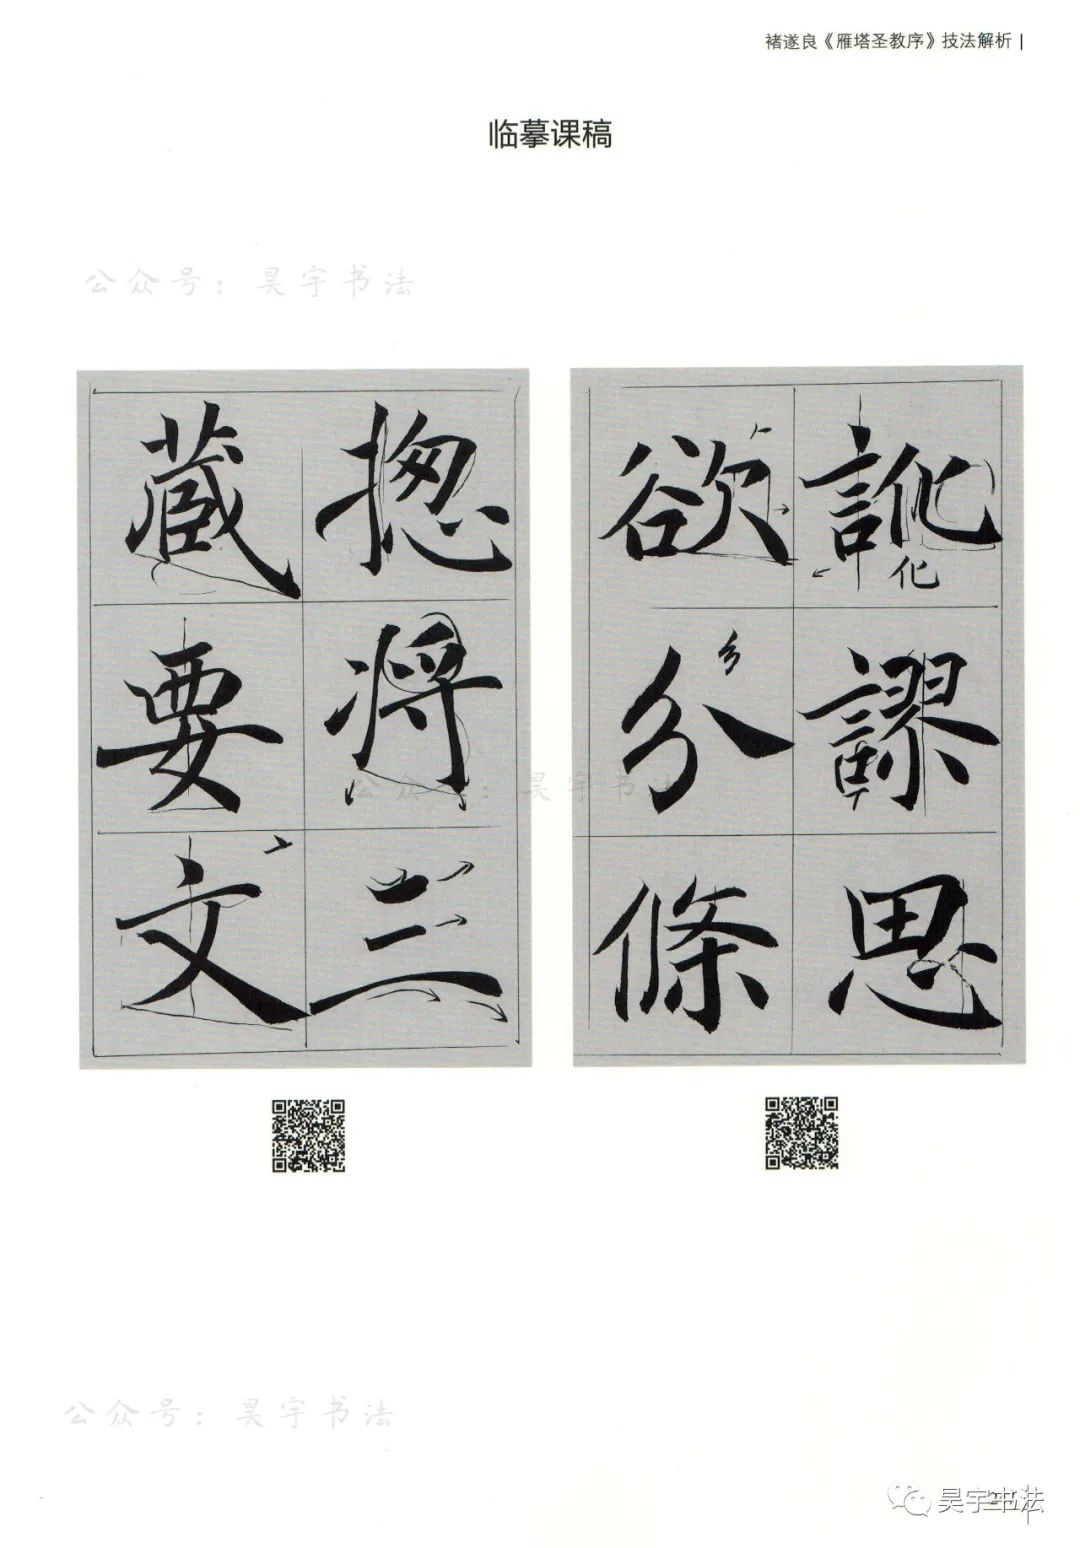 褚遂良《雁塔圣教序》技法解析
临摹课稿
公众号：昊宇书法
訛謬思
化
欲分條
揔将三
藏要文
公众号：昊宇书法
公众号：昊宇书法
昊宇书法